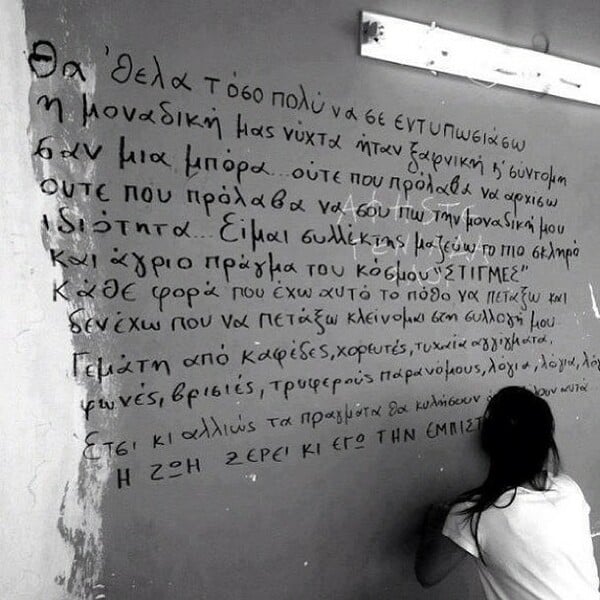 Θα 'θελα τόσο πολύ να σε εντυπωσιάσω
η μοναδική μας νύχτα ήταν ξαφνική κ' σύντομη
σαν μια μπόρα... ούτε που πρόλαβα να αρχίσω
ούτε που πρόλαβα να σου πω την μοναδική μου
ιδιότητα... Είμαι συλλέκτης μαζεύω το πιο σκληρό
και άγριο πράγμα του κόσμου "ΣΤΙΓΜΕΣ"
Κάθε φορά που έχω αυτό το πόθο να πετάξω και
δεν έχω που να πετάξω κλείνομαι στη συλλογή μου
Γεμάτη από καφέδες, χορευτές, τυχαία αγγίγματα,
φωνές, βρισιές, τρυφερούς παρανόμους, λόγια, λόγια,
Έτσι κι αλλιώς τα πράγματα θα κυλήσουν
Η ΖΩΗ ΞΕΡΕΙ ΚΙ ΕΓΩ ΤΗΝ